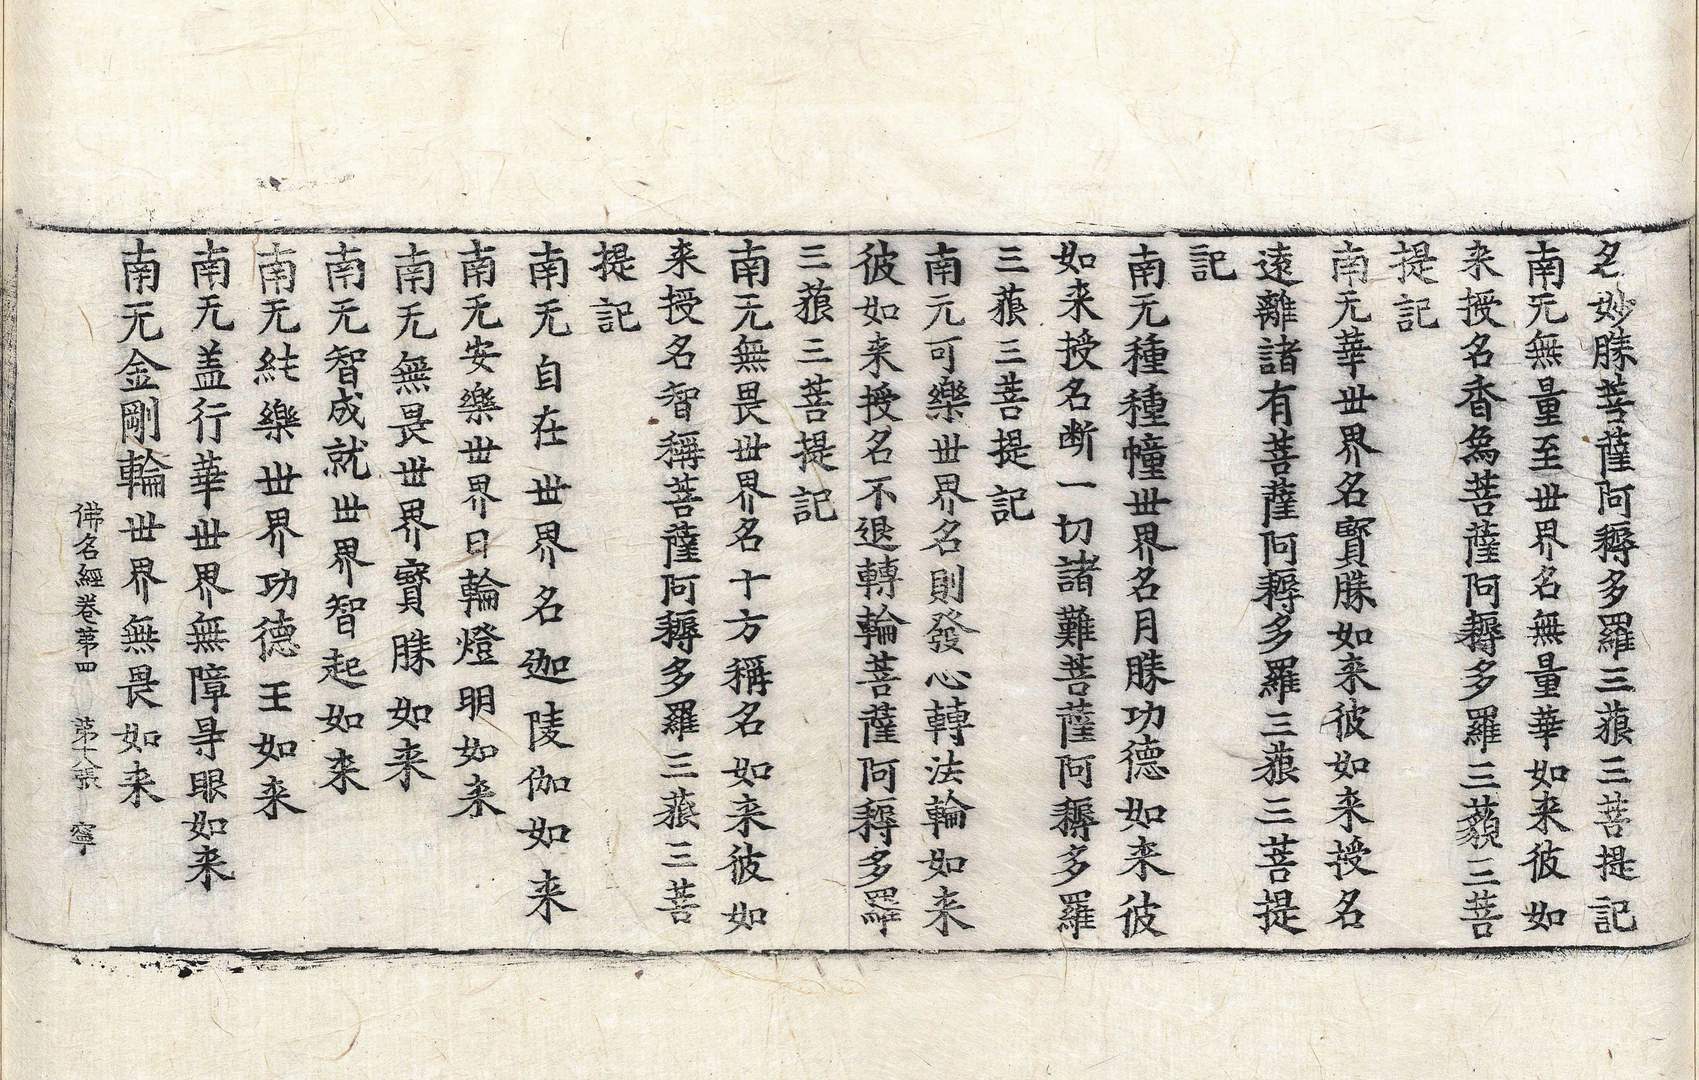 名妙勝菩薩阿耨多羅三藐三菩提記
南无無量至世界名無量華如来彼如
来授名香為菩薩阿耨多羅三藐三菩
提記
南无華世界名賢勝如来彼如来授名
遠離諸有菩薩阿耨多羅三藐三菩提
記
南无種種幢世界名月勝功德如来彼
如来授名断一切諸難菩薩阿耨多羅
三藐三菩提記
南无可樂世界名則發心轉法輪如来
彼如来授名不退轉輪菩薩阿耨多羅
三藐三菩提記
南无無畏世界名十方稱名如来彼如
来授名智稱菩薩阿耨多羅三藐三菩
提記
南无自在世界名迦陵伽如来
南无安樂世界日輪燈明如来
南无無畏世界寳勝如来
南无智成就世界智起如来
南无純樂世界功德王如来
南无盖行華世界無障㝵眼如来
南无金剛輪世界無畏如来
佛名經卷苐四 第十八張 寧